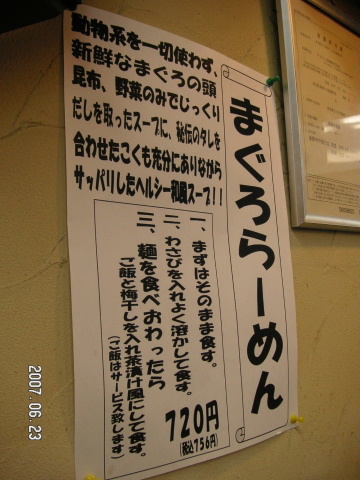 まぐろらーめん
動物系を一切使わず、
新鮮なまぐろの頭
昆布、野菜のみでじっくり
だしを取ったスープに、秘伝のタレを
合わせたこくも充分にありながら
サッパリしたヘルシー和風スープ!!
一、まずはそのまま食す。
二、わさびを入れよく溶かして食す。
三、麺を食べおわったら
ご飯と梅干しを入れ茶漬け風にして食す。
(ご飯はサービス致します)
720円
(税込756円)
2007.06.23